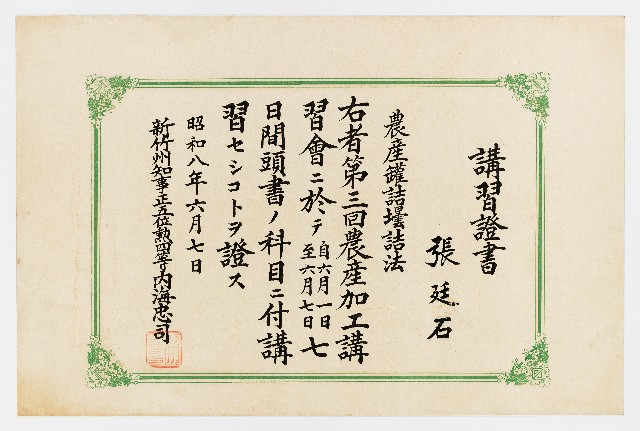 講習證書
張廷石
農産罐詰壜詰法
右者第三回農産加工講
習會ニ於テ自六月一日至六月七日七
日間頭書ノ科目ニ付講
習セシコトヲ證ス
昭和八年六月七日
新竹州知事正五位勲四等内海忠司